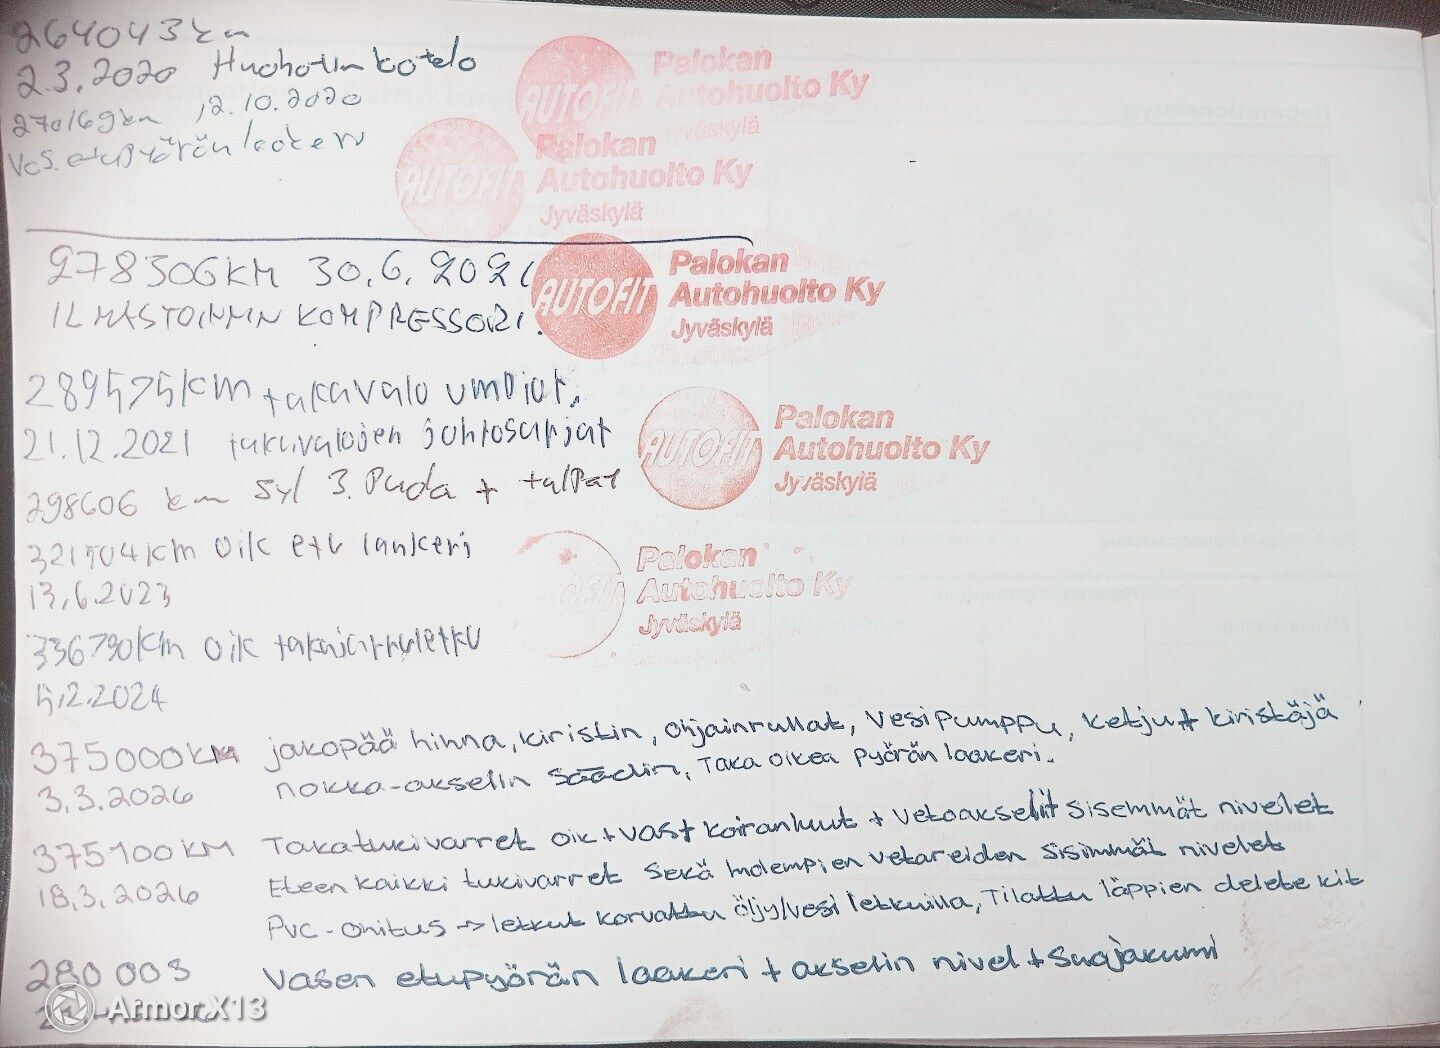 264043 km
2.3.2020 kotelo
270169km 12.10.2020
Vas. etupyörän laakeri
AUTOFIT Palokan
Autohuolto Ky
Jyväskylä
AUTOFIT Palokan
Autohuolto Ky
Jyväskylä
278306KM 30.6.2021
ILMASTOINNIN KOMPRESSORI.
AUTOFIT Palokan
Autohuolto Ky
Jyväskylä
289575KM takavalo umpiot.
21.12.2021 takavalojen johtosarjat
AUTOFIT Palokan
Autohuolto Ky
Jyväskylä
298606 km Syl 3. Puola + tulpat
321504KM oik etu laakeri
13.6.2023
Palokan
Autohuolto Ky
Jyväskylä
336790KM oik takajarruletku
5.2.2024
375000KM jakopää hihna, kiristin, ohjainrullat, Vesipumppu, ketju + kiristäjä
3.3.2026 nokka-akselin säädin, Taka oikea pyörän laakeri.
375100KM Takatukivarret oik + vas + koiranluut + vetoakselit sisemmät nivelet
18.3.2026 Eteen kaikki tukivarret sekä molempien vetareiden sisimmät nivelet
PVC-ohitus -> letkut korvattu öljy/vesi letkuilla, Tilattu läppien delete kit
280 003 Vasen etupyörän laakeri + akselin nivel + suojakumi
ArmorX13